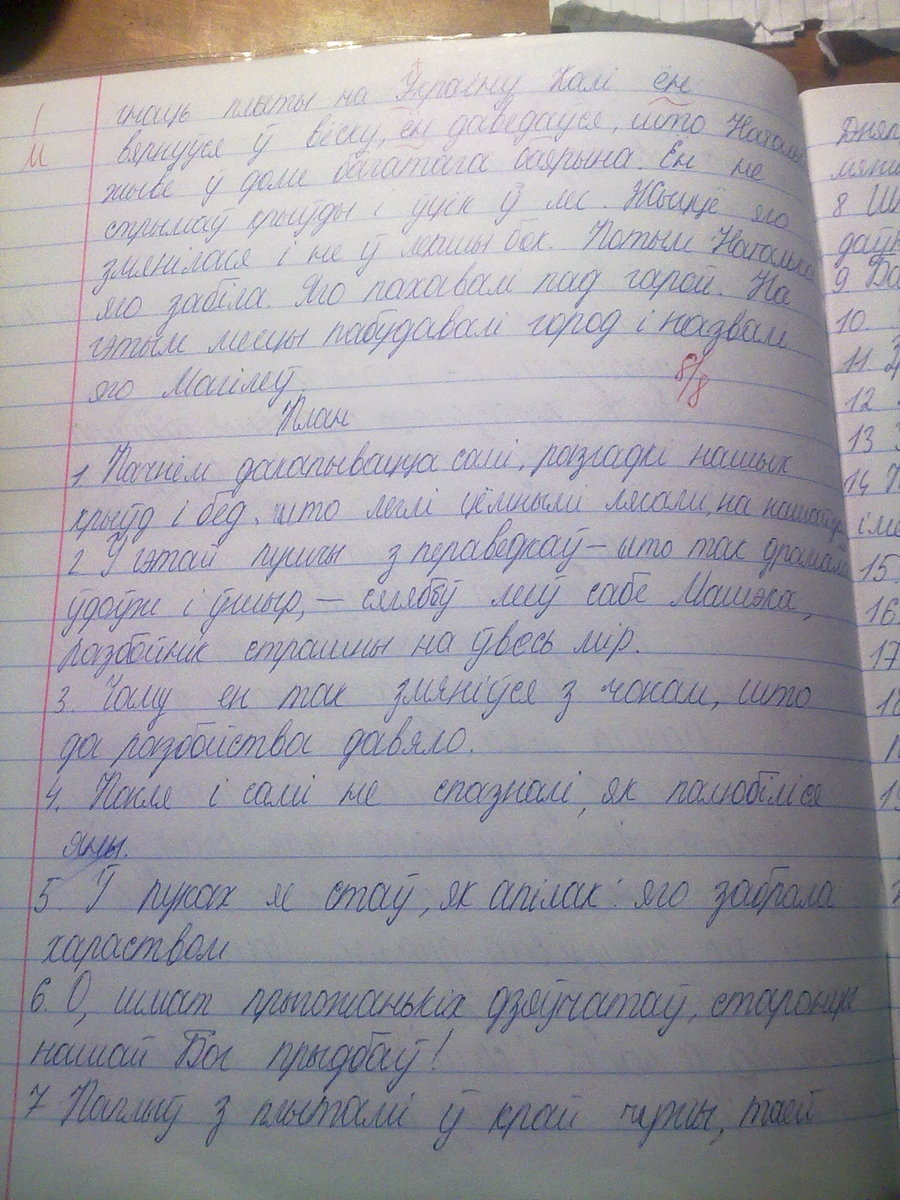 гнаць плыты на Украіну Калі ён
вярнуўся ў вёску, ён даведаўся, што Наталька
жыве ў доме багатага баярына. Ён не
стрымаў крыўды і уцік ў лес. Жыццё яго
змянілася і не ў лепшы бок. Потым Наталька
яго забіла. Яго пахавалі пад гарой. На
гэтым месцы пабудавалі город і назвалі
яго Магілеў.
8/8
План
1. Пачнём дакапывацца самі, разгадкі нашых
крыўд і бед, што леглі цёмнымі лясамі, на нашай
2 У гэтай пушчы з пераведкаў – што так драмала
ўдоўж і ўшыр, – сялябыў леў сабе Машэка,
разбойнік страшны на ўвесь мір.
3. Чаму ен так змяніўся з чокам, што
да разбойства давяло.
4. Покля і самі не спазналі, як палюбіліся
яны.
5. Ў руках я стаў, як апілак: яго забрала
хараством
6. О, шмат прыгожанькіх дзяўчатаў, старонцы
нашай Бог прыдбаў!
7 Паплыў з плытамі ў край чужы, таей
М
Дняп
8 Ш
даўн
9 Ба
10.
11.
12
13
14
15.
16.
17